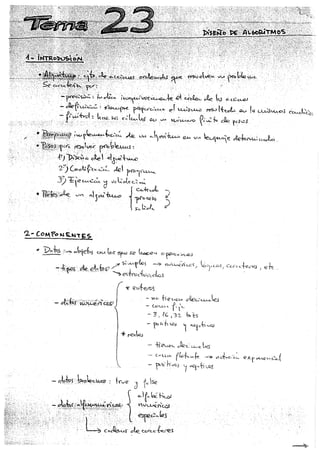 Tema 23
DISEÑO DE ALGORITMOS
1- INTRODUSIÓN
• Algoritmo : cjto. de acciones ordenadas que resuelven un problema
Se caracteriza por:
- precisión: indica inequívocamente el orden de las acciones
- definición: siempre proporciona el mismo resultado en las mismas condic.
- finitud: hace sus cálculos en un número finito de pasos
• Programa implementación de un algoritmo en un lenguaje determinado.
• Pasos para resolver problemas:
1º) Diseño del algoritmo
2º) Codificación del programa
3º) Ejecución y validación
• Partes de un algoritmo { entrada
proceso
salida
2- COMPONENTES
• Datos → objetos con los que se hacen operaciones
- tipos de datos → simples → numéricos, lógicos, caracteres, etc.
→ estructurados
- datos numéricos
* enteros
- no tienen decimales
- coma fija
- 8, 16, 32 bits
- positivos y negativos
* reales
- tienen decimales
- coma flotante → notación exponencial
- positivos y negativos
- datos booleanos : true y false
- datos alfanuméricos { alfabéticos
numéricos
especiales
→ cadenas de caracteres